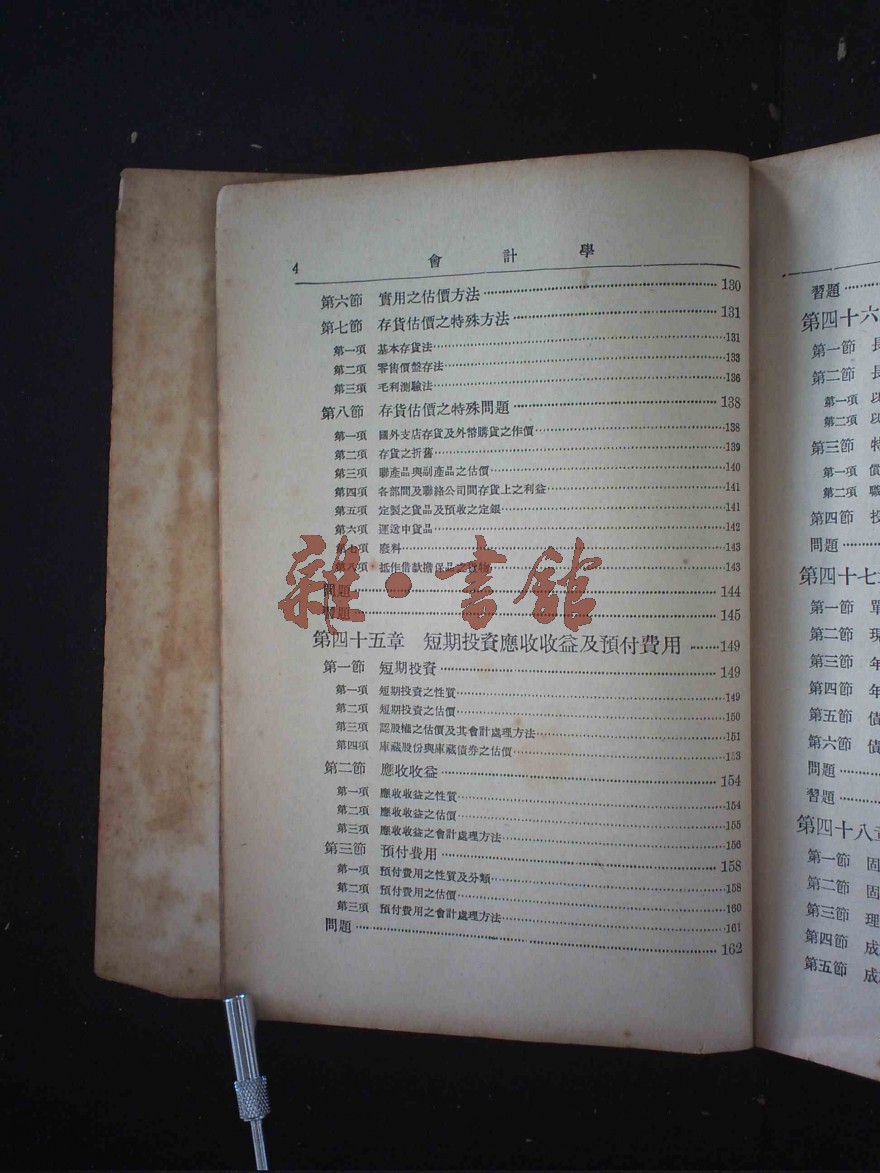 4 會計學
第六節 實用之估價方法 130
第七節 存貨估價之特殊方法 131
第一項 基本存貨法 131
第二項 零售價盤存法 133
第三項 毛利測驗法 136
第八節 存貨估價之特殊問題 138
第一項 國外支店存貨及外幣購貨之作價 138
第二項 存貨之折舊 139
第三項 聯產品與副產品之估價 140
第四項 各部間及聯絡公司間存貨上之利益 141
第五項 定製之貨品及預收之定銀 141
第六項 運送中貨品 142
第七項 廢料 143
第八項 抵作借款擔保品之貨物 143
問題 144
習題 145
雜·書館
第四十五章 短期投資應收收益及預付費用 149
第一節 短期投資 149
第一項 短期投資之性質 149
第二項 短期投資之估價 150
第三項 認股權之估價及其會計處理方法 151
第四項 庫藏股份與庫藏債券之估價 153
第二節 應收收益 154
第一項 應收收益之性質 154
第二項 應收收益之估價 155
第三項 應收收益之會計處理方法 156
第三節 預付費用 158
第一項 預付費用之性質及分類 158
第二項 預付費用之估價 160
第三項 預付費用之會計處理方法 161
問題 162
習題
第四十六
第一節 長
第二節 長
第一項 以
第二項 以
第三節 特
第一項 償
第二項 職
第四節 投
問題
第四十七
第一節 單
第二節 現
第三節 年
第四節 年
第五節 債
第六節 債
問題
習題
第四十八章
第一節 固
第二節 固
第三節 理
第四節 成
第五節 成